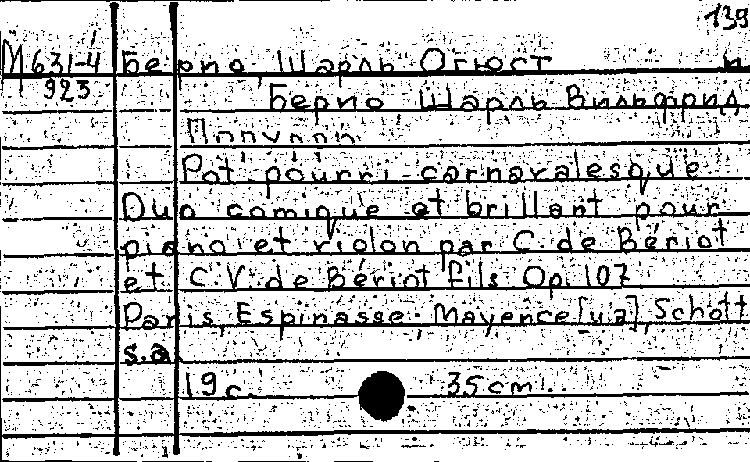 139
М 631-4 Берио, Шарль Огюст и
923 Берио Шарль Вильфрид
Pot pourri carnavalesque
Duo comique et brillant pour
piano et violon par C. de Bériot
et C. V. de Bériot fils Op. 107
Paris, Espinasse; Mayence [u a], Schott
s.a.
19 c. 35 cm.